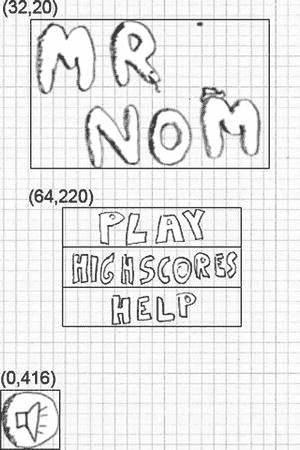 (32,20)
MR
NOM
(64,220)
PLAY
HIGHSCORES
HELP
(0,416)